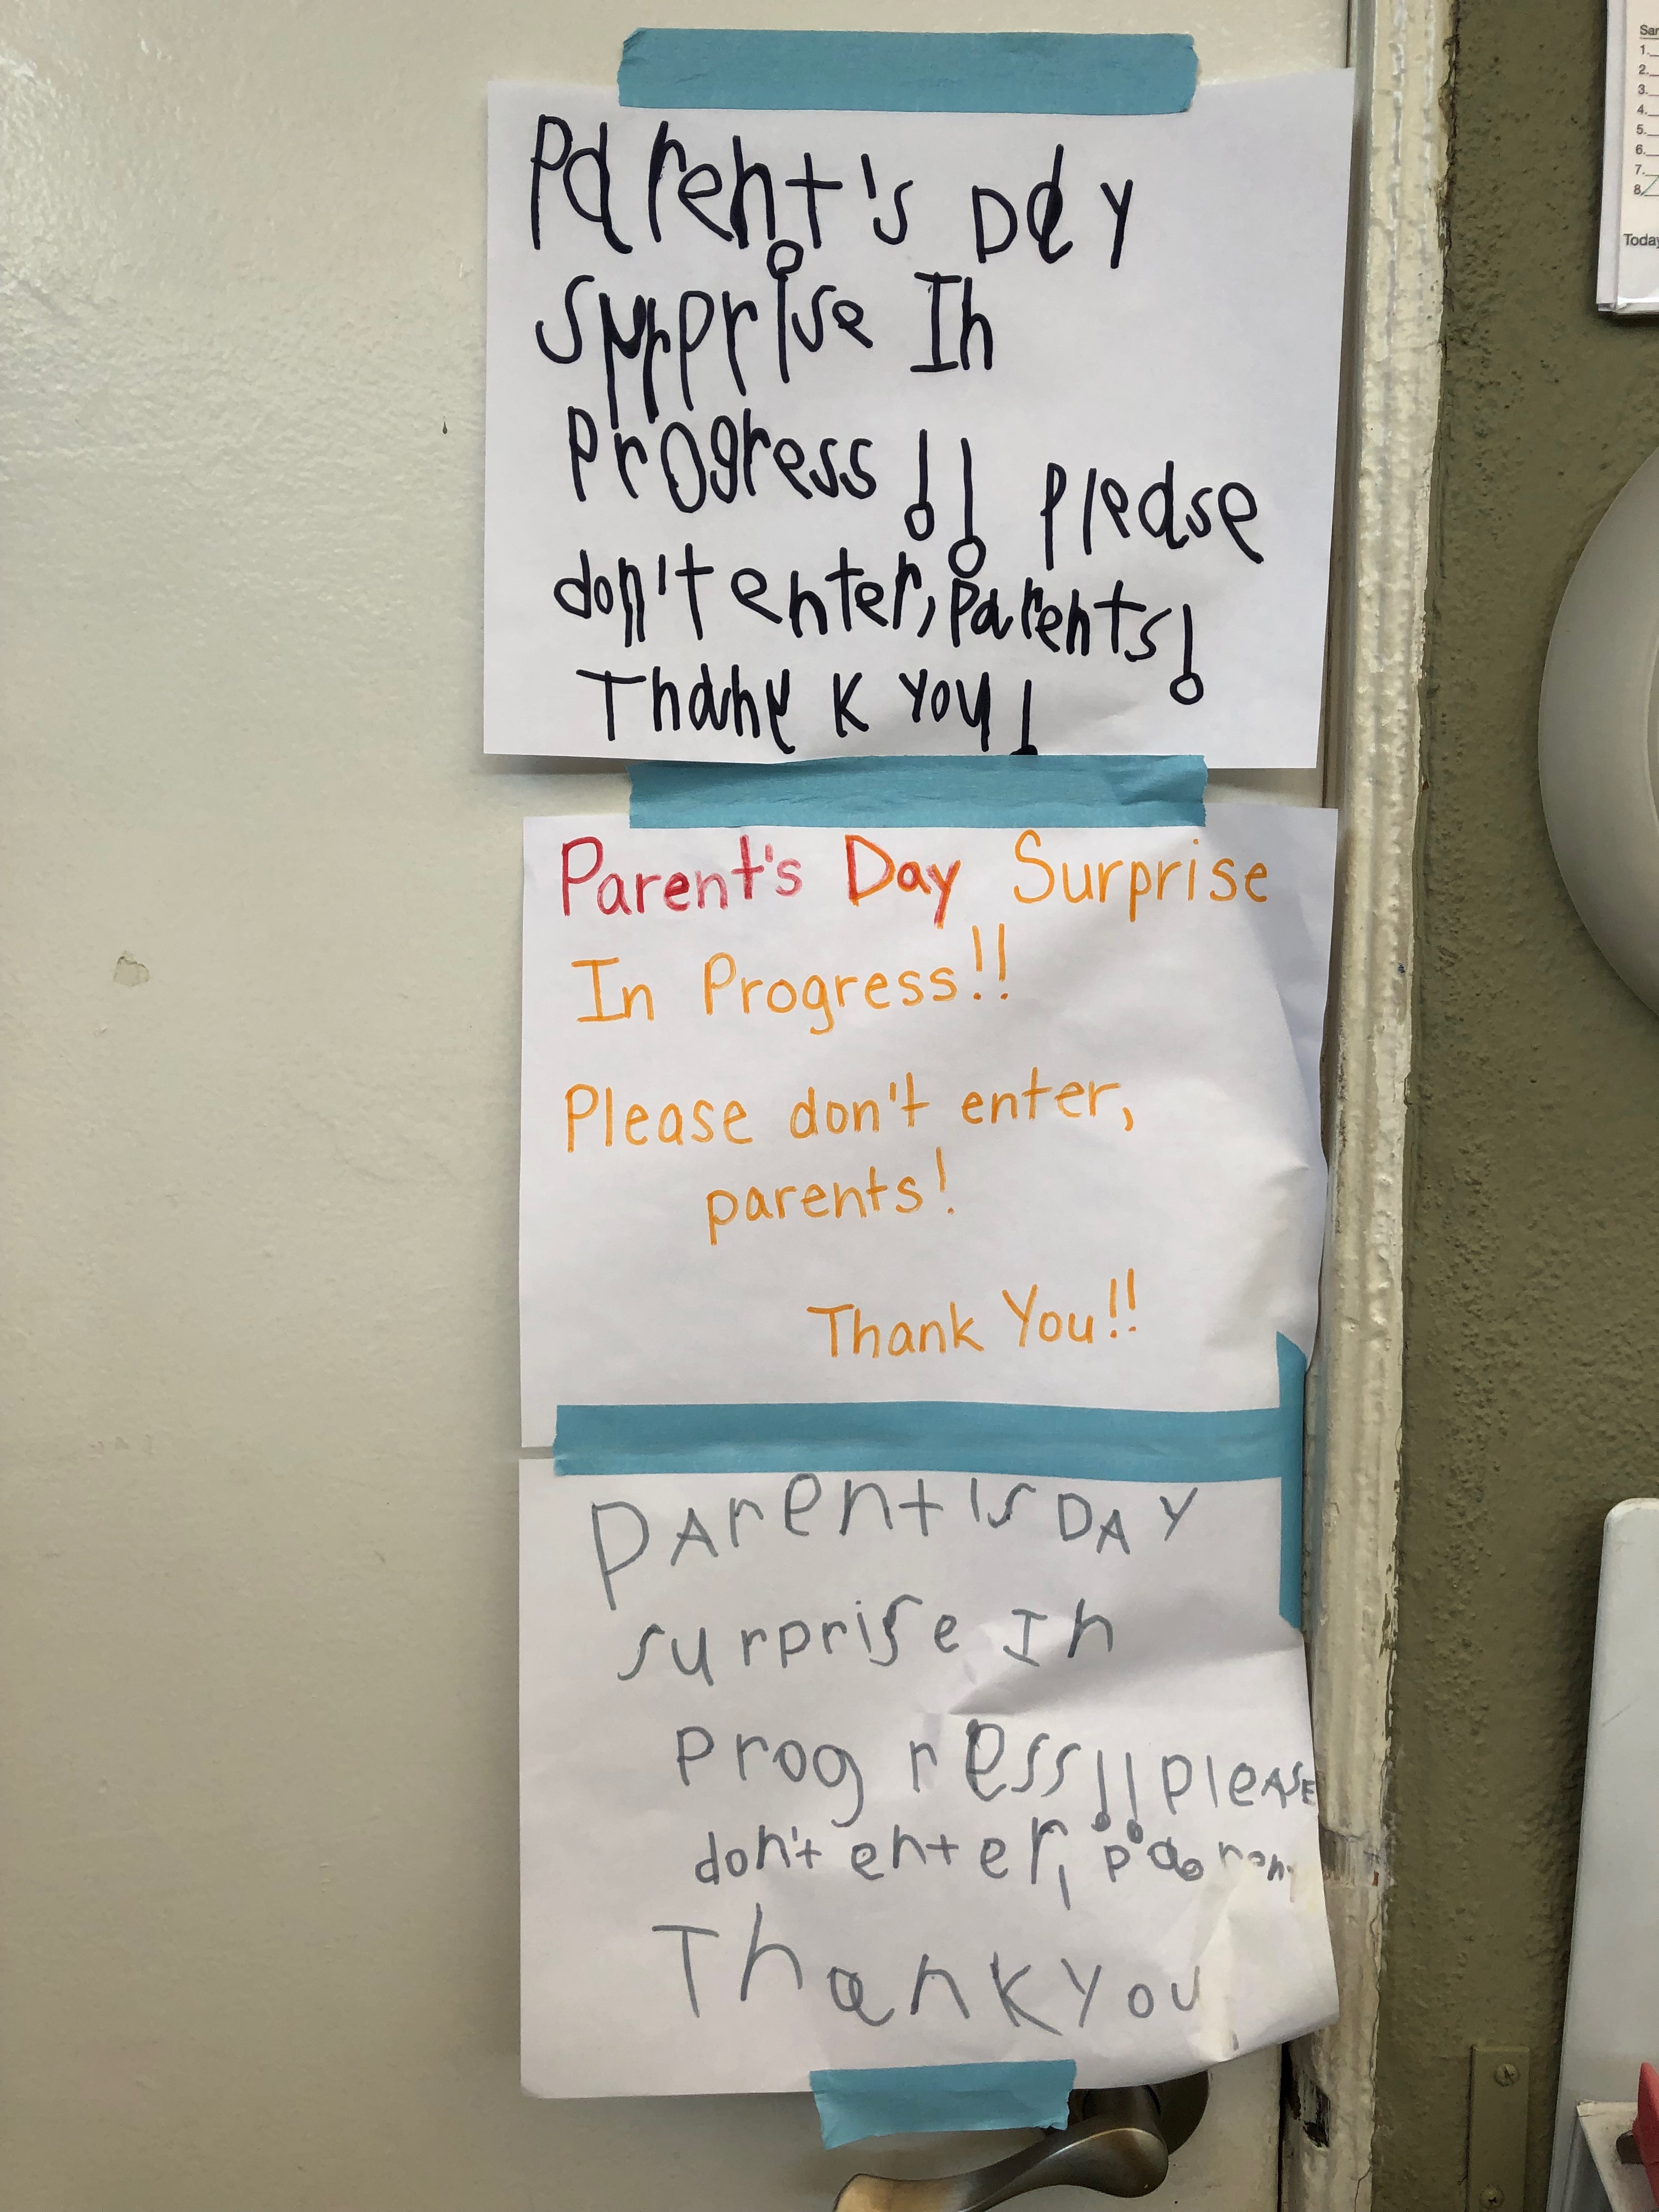 Parent's Day
Surprise In
Progress!! Please
don't enter, Parents!
Thank you!
Parent's Day Surprise
In Progress!!
Please don't enter,
parents!
Thank You!!
PArent's DAY
surprise In
progress!! pleASE
don't enter,
Thank you
San
1.
2.
3.
4.
5.
6.
7.
8.
Today